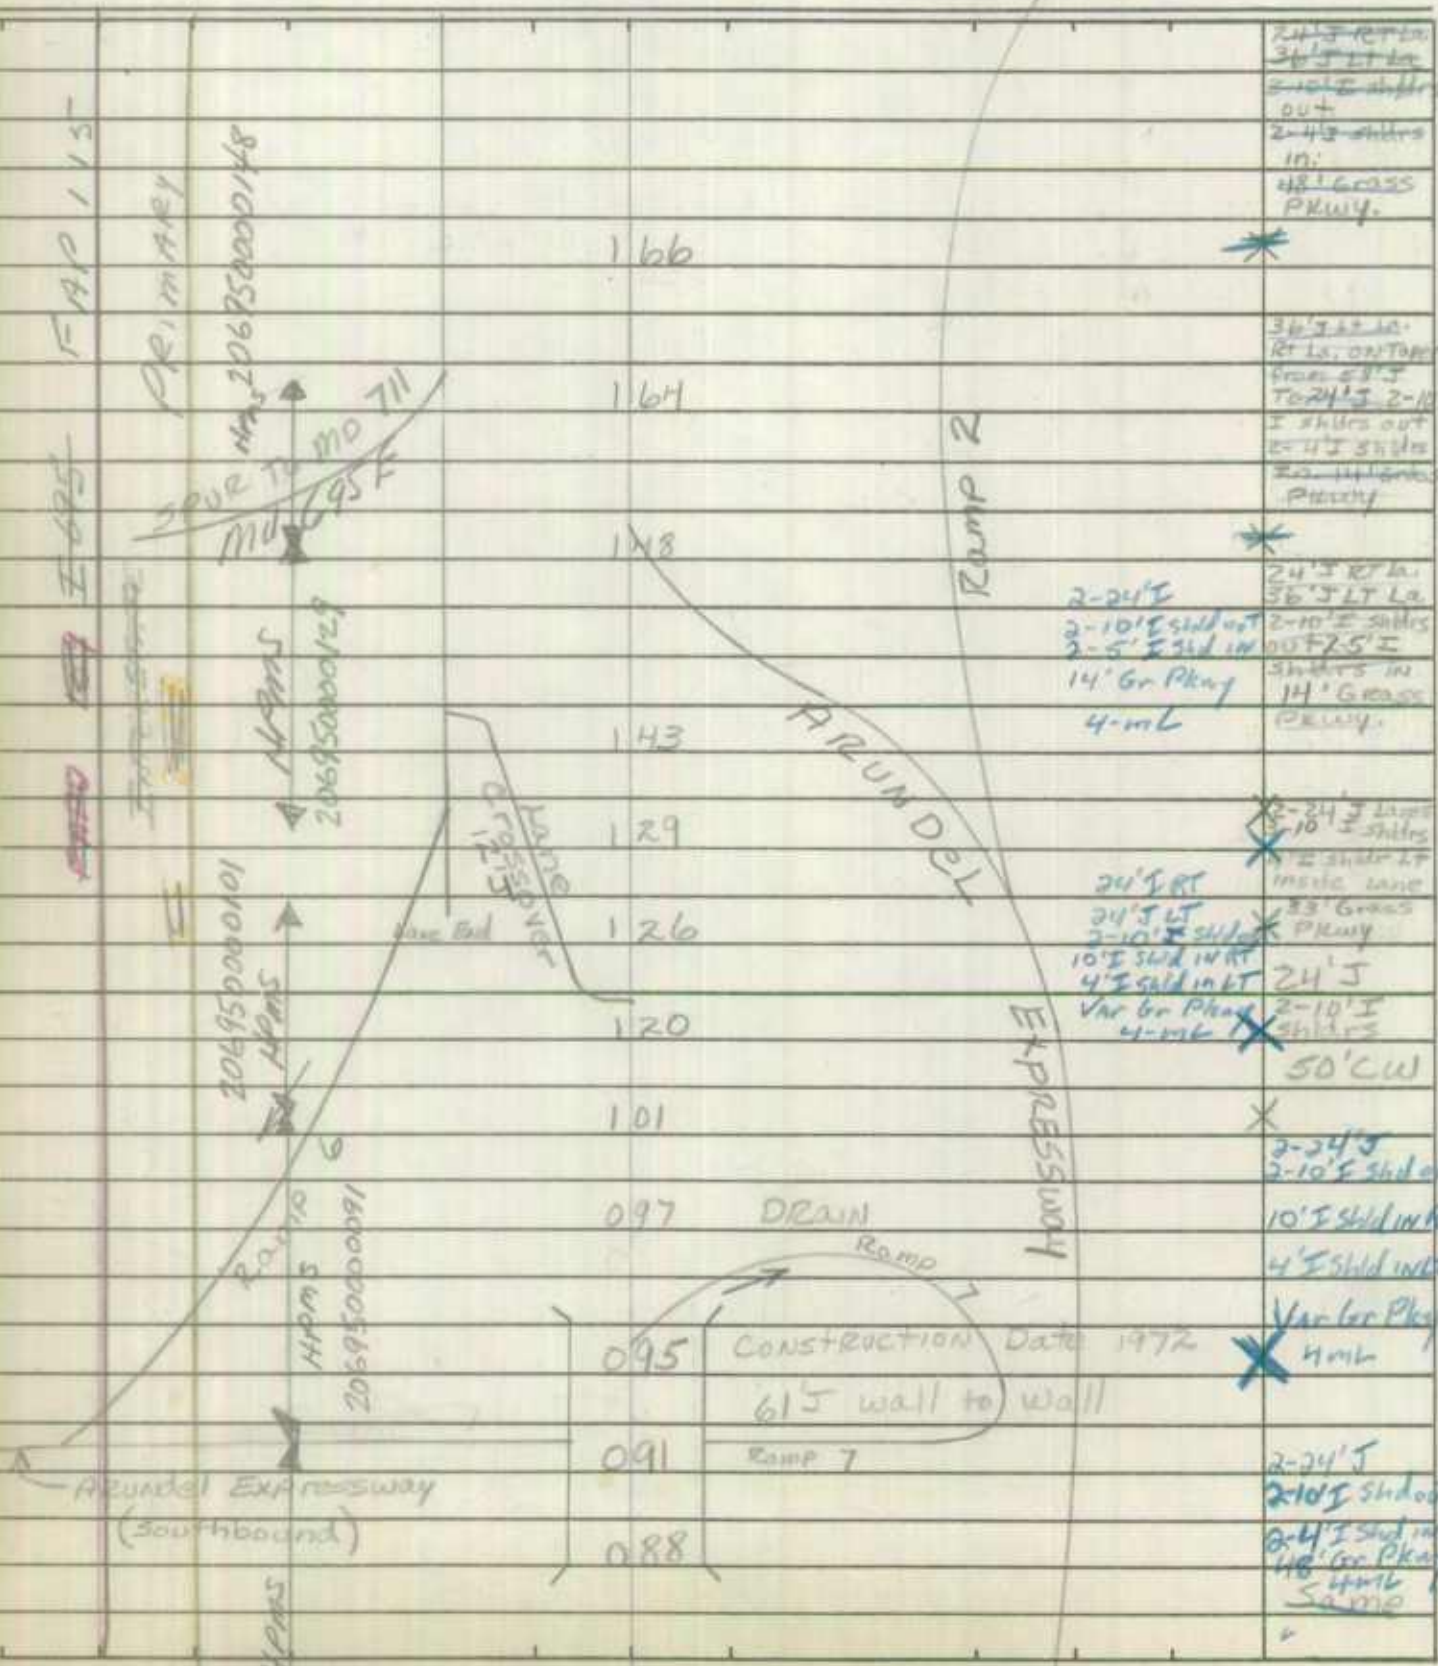 FAP 115
I-695
PRIMARY
HPMS 2069500000148
SPUR TO MD 711
Md 695 F
HPMS
2069500000129
2069500000101
HPMS
Ramp 6
HPMS
2069500000091
HPMS
Arundel Expressway
(Southbound)
Lane
Crossover
12' J
Lane End
1 66
1 64
1 48
1 43
1 29
1 26
1 20
1 01
0 97 DRAIN
0 95
0 91
0 88
Ramp 2
ARUNDEL EXPRESSWAY
Ramp 7
CONSTRUCTION Date 1972
61' J wall to wall
Ramp 7
2-24' I
2-10' I Shld out
2-5' I Shd IN
14' Gr Pkwy
4-mL
24' I RT
24' J LT
2-10' I Shld
10' I Shld IN RT
4' I Shld in LT
Var Gr Pkwy
4-mL
24' J RT La
36' J LT La
2-10' I shldrs
out
2-4' I shldrs
in;
48' Grass
PKWY.
36' J Lt La.
Rt La. ON Taper
from 58' J
To 24' J 2-10
I shldrs out
2-4' I shldrs
In. 14' Grass
Pkwy
24' J RT La.
36' J LT La
2-10' I shldrs
out 2-5' I
shldrs in
14' Grass
PKWY.
2-24' J Lanes
3-10' I shldrs
4' I shldr LT
inside lane
33' Grass
Pkwy
24' J
2-10' I
shldrs
50' CW
2-24' J
2-10' I Shd o
10' I Shld IN
4' I Shld IN L
Var Gr Pkwy
4 mL
2-24' J
2-10' I Shd ou
2-4' I Shd in
48' Gr Pkw
4-mL
Same